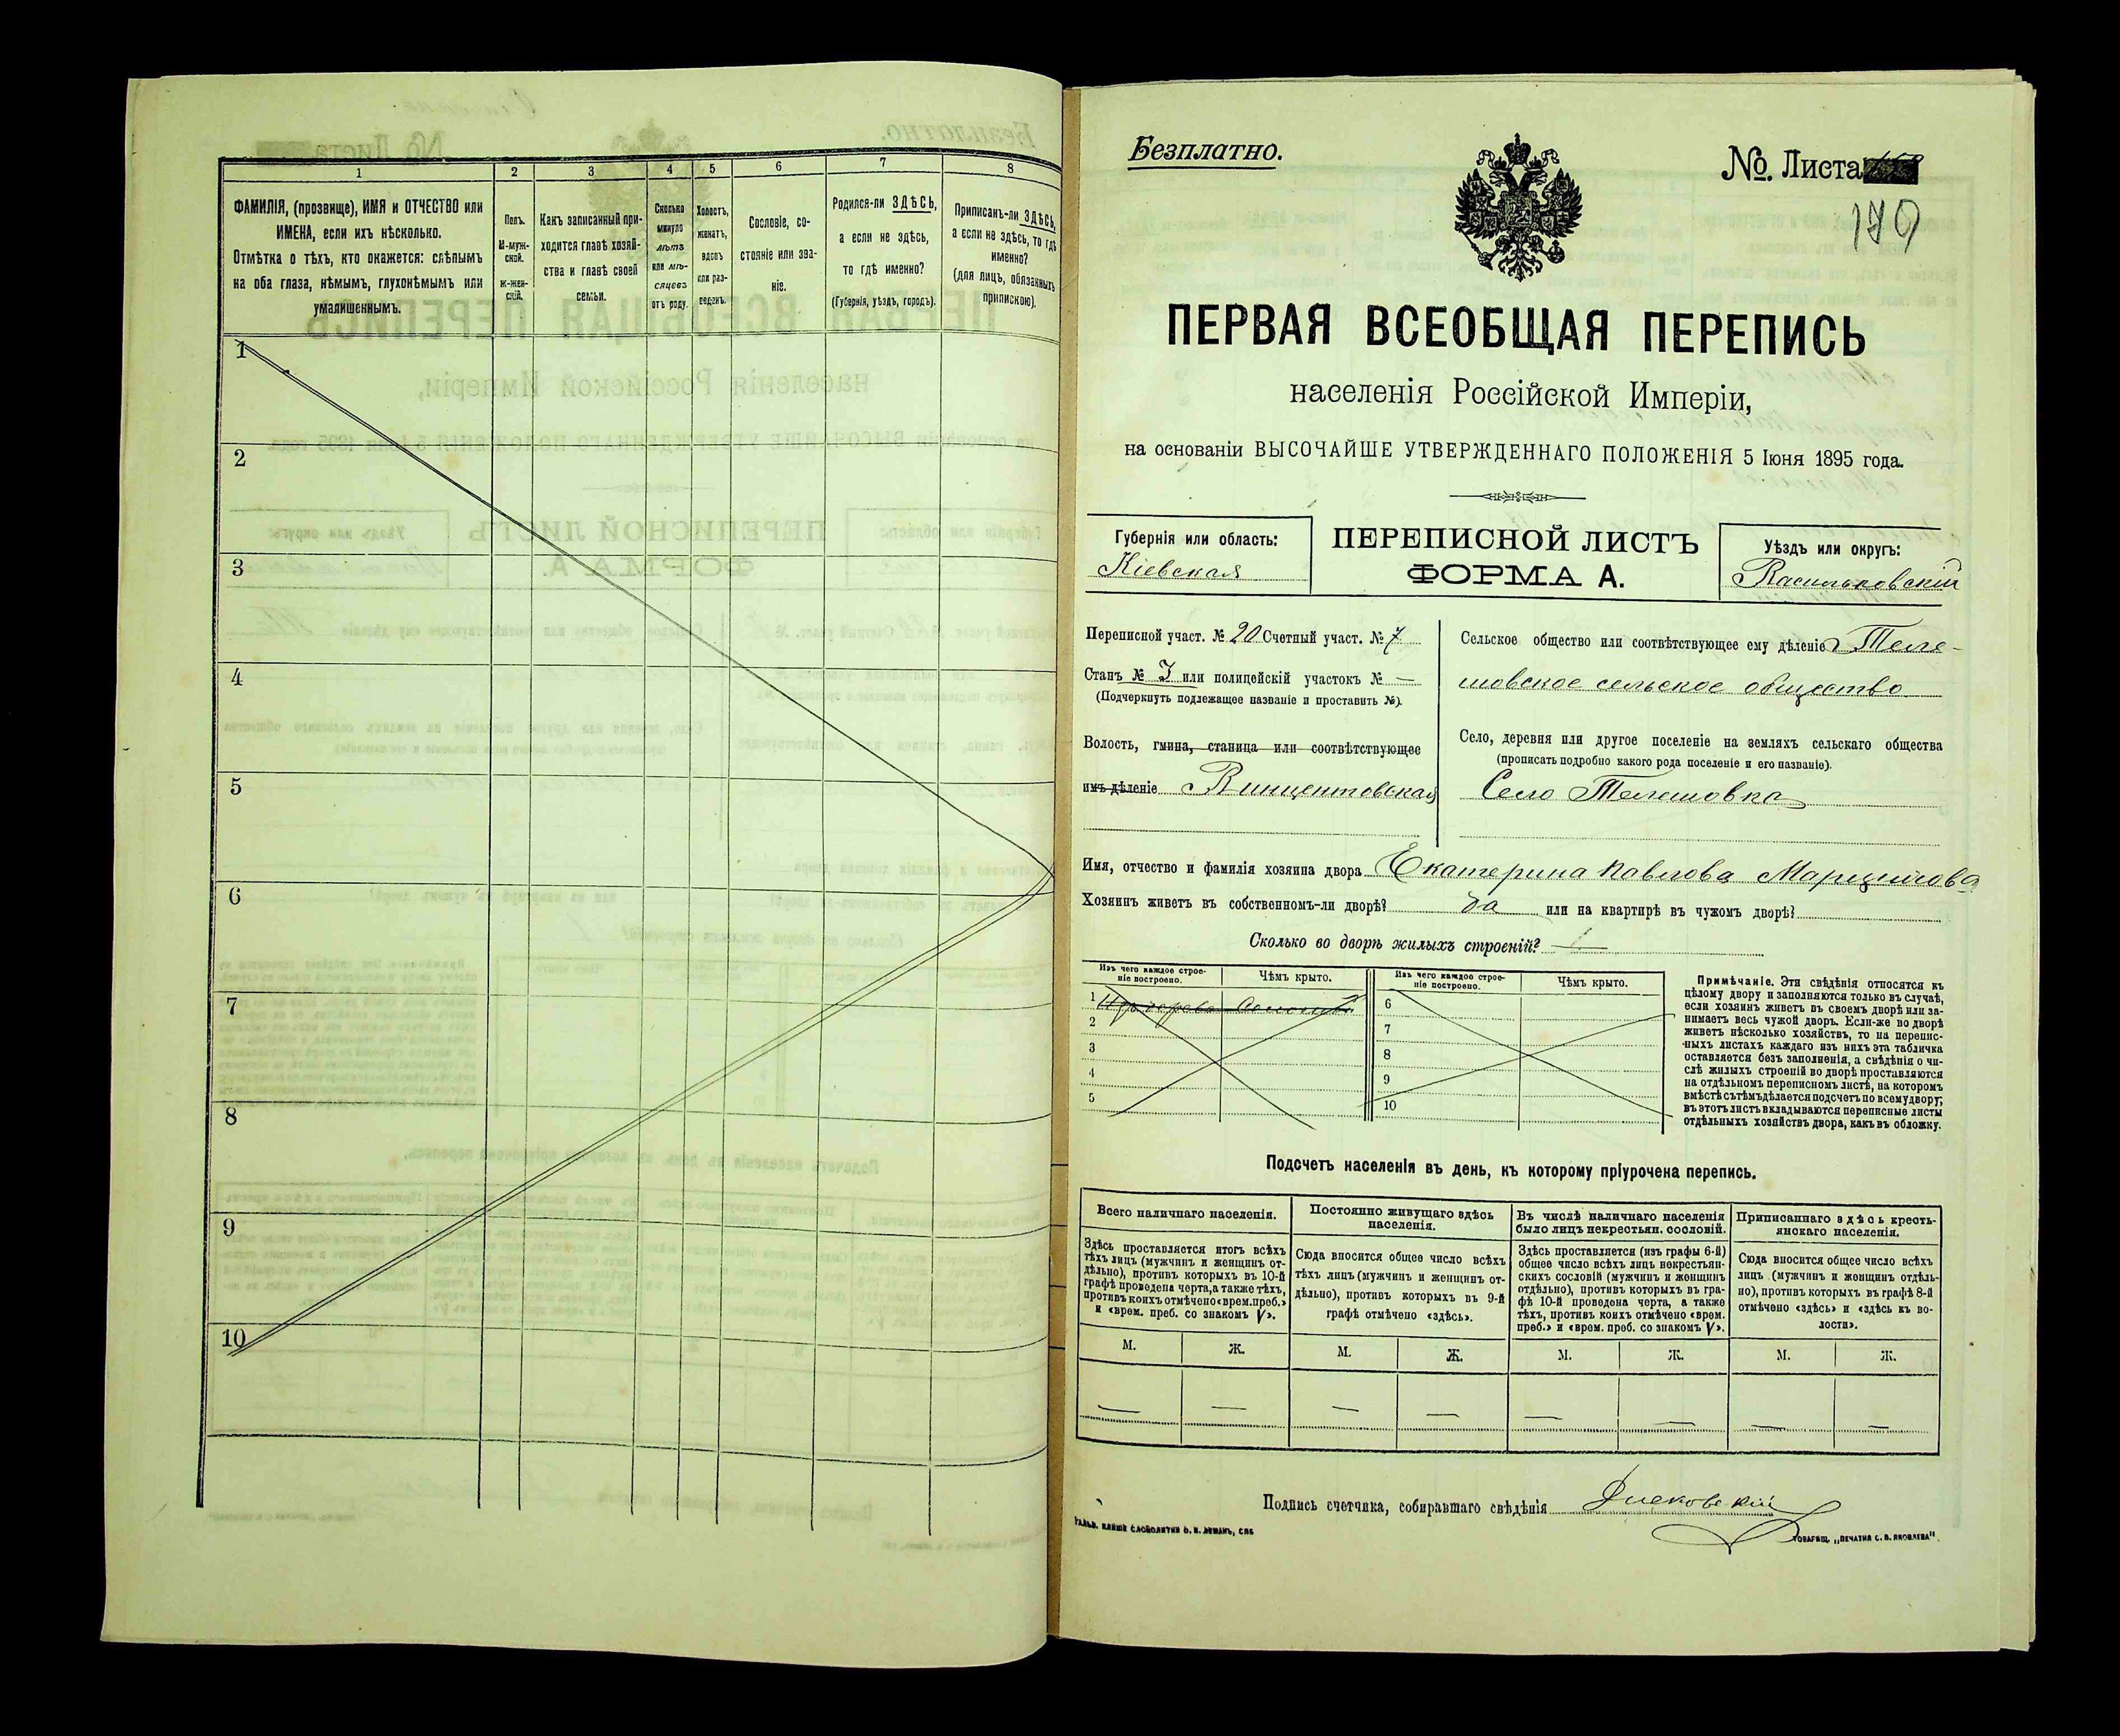 1 2 3 4 5 6 7 8
ФАМИЛІЯ, (прозвище), ИМЯ и ОТЧЕСТВО или
ИМЕНА, если ихъ нѣсколько.
Отмѣтка о тѣхъ, кто окажется: слѣпымъ
на оба глаза, нѣмымъ, глухонѣмымъ или
умалишеннымъ.
Полъ.
М-муж-
ской.
Ж-жен-
скій.
Какъ записанный при-
ходится главѣ хозяй-
ства и главѣ своей
семьи.
Сколько
минуло
лѣтъ
или мѣ-
сяцевъ
отъ роду.
Холостъ,
женатъ,
вдовъ
или раз-
веденъ.
Сословіе, со-
стояніе или зва-
ніе.
Родился-ли ЗДѢСЬ,
а если не здѣсь,
то гдѣ именно?
(Губернія, уѣздъ, городъ).
Приписанъ-ли ЗДѢСЬ,
а если не здѣсь, то гдѣ
именно?
(для лицъ, обязанныхъ
припискою).
1
2
3
4
5
6
7
8
9
10
Безплатно.
№. Листа
170
ПЕРВАЯ ВСЕОБЩАЯ ПЕРЕПИСЬ
населенія Россійской Имперіи,
на основаніи ВЫСОЧАЙШЕ УТВЕРЖДЕННАГО ПОЛОЖЕНІЯ 5 Іюня 1895 года.
Губернія или область:
Кіевская
ПЕРЕПИСНОЙ ЛИСТЪ
ФОРМА А.
Уѣздъ или округъ:
Васильковскій
Переписной участ. № 20 Счетный участ. № 7
Станъ № 3 или полицейскій участокъ № —
(Подчеркнуть подлежащее названіе и проставить №).
Волость, гмина, станица или соотвѣтствующее
имъ дѣленіе Винцентовская
Сельское общество или соотвѣтствующее ему дѣленіе Теле-
шовское сельское общество
Село, деревня или другое поселеніе на земляхъ сельскаго общества
(прописать подробно какого рода поселеніе и его названіе).
Село Телешовка
Имя, отчество и фамилія хозяина двора Екатерина Павлова
Хозяинъ живетъ въ собственномъ-ли дворѣ? да или на квартирѣ въ чужомъ дворѣ?
Сколько во дворѣ жилыхъ строеній? —
Изъ чего каждое строе-
ніе построено.
Чѣмъ крыто.
Изъ чего каждое строе-
ніе построено.
Чѣмъ крыто.
1
2
3
4
5
6
7
8
9
10
Примѣчаніе. Эти свѣдѣнія относятся къ
цѣлому двору и заполняются только въ случаѣ,
если хозяин живетъ въ своемъ дворѣ или за-
нимаетъ весь чужой дворъ. Если-же во дворѣ
живетъ нѣсколько хозяйствъ, то на перепис-
ныхъ листахъ каждаго изъ нихъ эта табличка
оставляется безъ заполненія, а свѣдѣнія о чи-
слѣ жилыхъ строеній во дворѣ проставляются
на отдѣльномъ переписномъ листѣ, на которомъ
вмѣстѣ съ тѣмъ дѣлается подсчетъ по всему двору;
въ этотъ листъ вкладываются переписные листы
отдѣльныхъ хозяйствъ двора, какъ въ обложку.
Подсчетъ населенія въ день, къ которому пріурочена перепись.
Всего наличнаго населенія.
Здѣсь проставляется итогъ всѣхъ
тѣхъ лицъ (мужчинъ и женщинъ от-
дѣльно), противъ которыхъ въ 10-й
графѣ проведена черта, а также тѣхъ,
противъ коихъ отмѣчено «врем. преб.»
и «врем. преб. со знакомъ V».
Постоянно живущаго здѣсь
населенія.
Сюда вносится общее число всѣхъ
тѣхъ лицъ (мужчинъ и женщинъ от-
дѣльно), противъ которыхъ въ 9-й
графѣ отмѣчено «здѣсь».
Въ числѣ наличнаго населенія
было лицъ некрестьян. сословій.
Здѣсь проставляется (изъ графы 6-й)
общее число всѣхъ лицъ некрестьян-
скихъ сословій (мужчинъ и женщинъ
отдѣльно), противъ которыхъ въ гра-
фѣ 10-й проведена черта, а также
тѣхъ, противъ коихъ отмѣчено «врем.
преб.» и «врем. преб. со знакомъ V».
Приписаннаго здѣсь кресть-
янскаго населенія.
Сюда вносится общее число всѣхъ
лицъ (мужчинъ и женщинъ отдѣль-
но), противъ которыхъ въ графѣ 8-й
отмѣчено «здѣсь» и «здѣсь къ во-
лости».
М. Ж. М. Ж. М. Ж. М. Ж.
— — — — — — — —
Подпись счетчика, собиравшаго свѣдѣнія
ГАЛЬВ. КЛИШЕ СЛОВОЛИТНИ О. И. ЛЕМАНЪ, СПБ
ТОВАРИЩ. „ПЕЧАТНЯ С. П. ЯКОВЛЕВА".